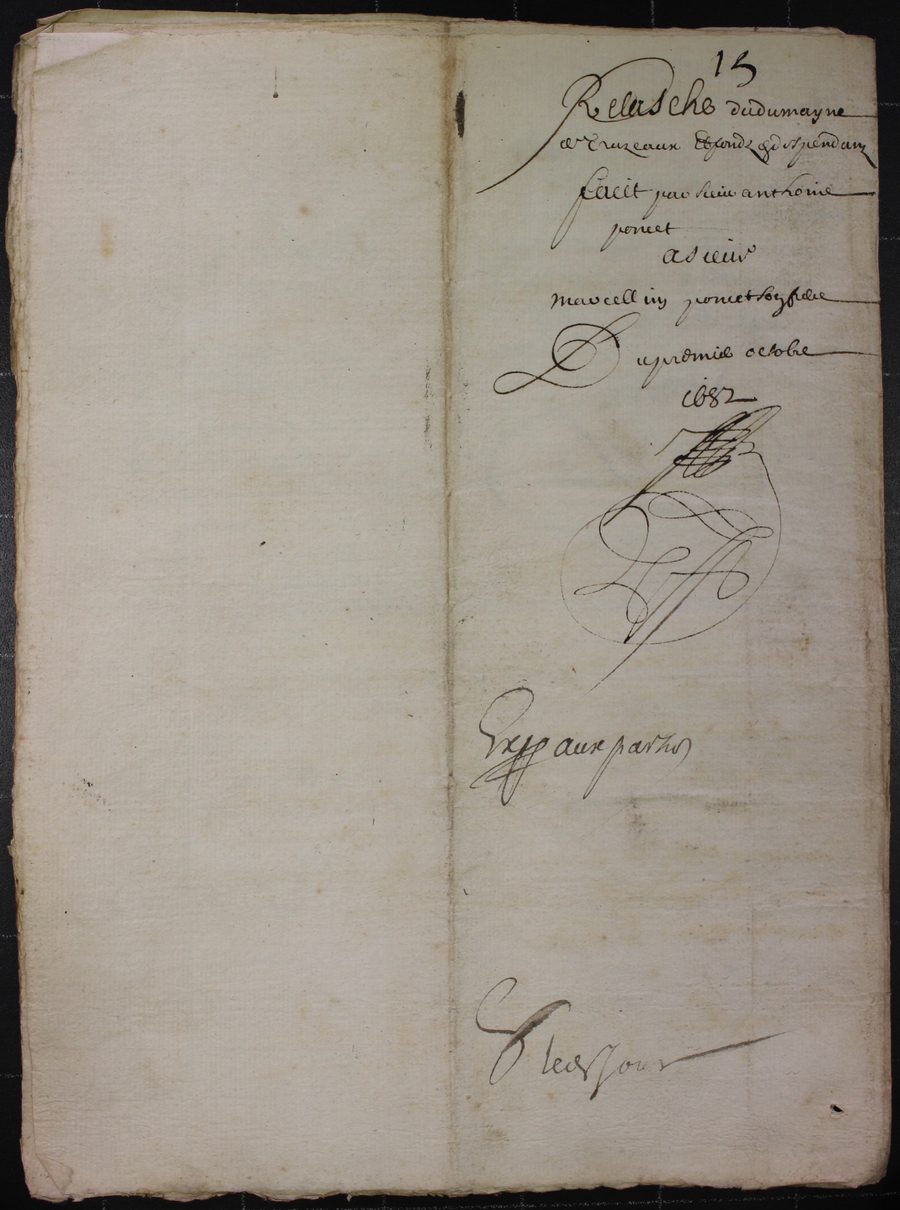 15
Relasche du dumayne
de Truzeaux et fondz despendantz
faict par sieur anthoine
poncet
a sieur
marcellin poncet son frere
Du premier octobre
1682
aux partyes